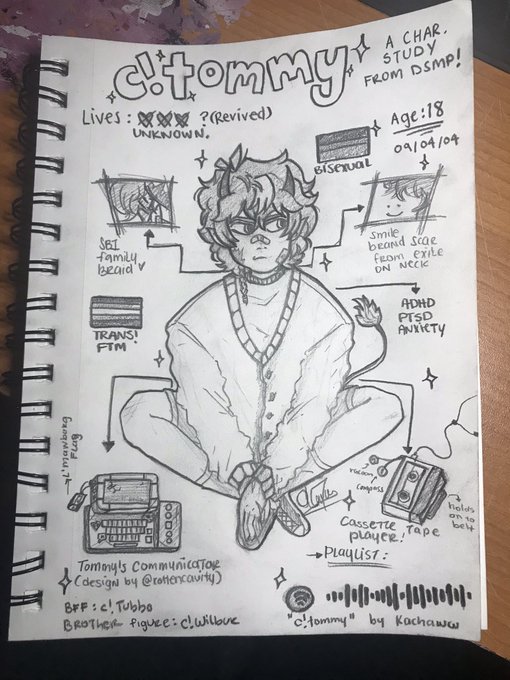 c!tommy
A CHAR.
STUDY
FROM DSMP!
Lives: XXX ?(Revived)
UNKNOWN.
Age:18
09/04/04
BISEXUAL
SBI
family
braid
Smile
brand scar
from exile
on neck
TRANS!
FTM
ADHD
PTSD
ANXIETY
L'manburg
Flag
racoon
compass
holds
on to
belt
Cassette Tape
player!
Tommy's Communicator
(design by @rottencavity)
→Playlist:
BFF: c!Tubbo
Brother figure: c!Wilbur
"c!tommy" by Kachaww